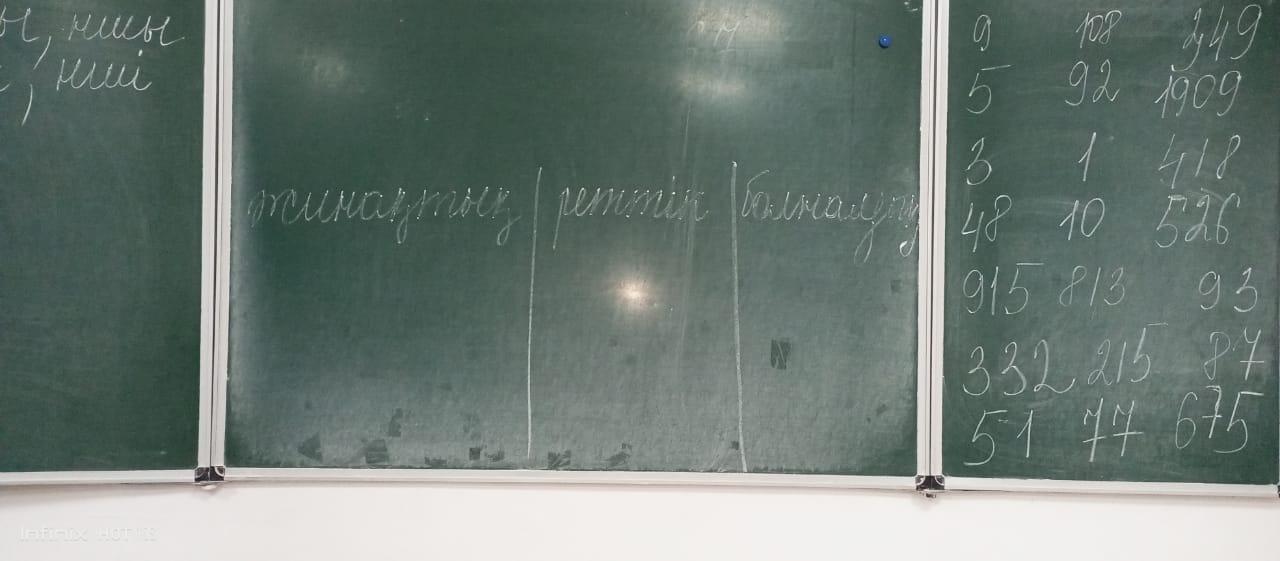 ы, ншы
і, нші
жинақтық реттік болжалдық
9 108 249
5 92 1909
3 1 418
48 10 526
915 813 93
332 215 87
51 77 675
Infinix HOT 12